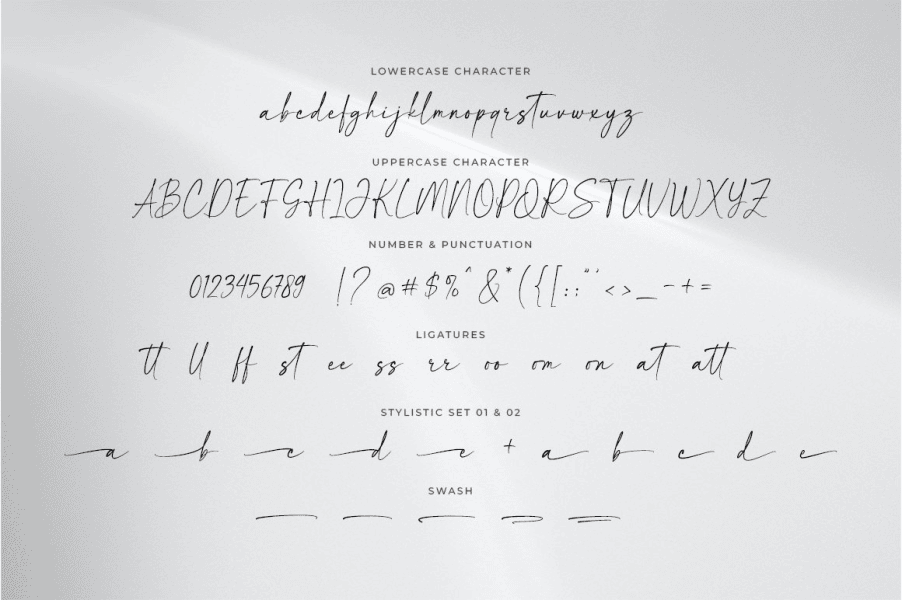 LOWERCASE CHARACTER
abcdefghijklmnopqrstuvwxyz
UPPERCASE CHARACTER
ABCDEFGHIJKLMNOPQRSTUVWXYZ
NUMBER & PUNCTUATION
0123456789 !?@#$%^&*({[:;"'<>_-+=
LIGATURES
tt ll ff st ee ss rr oo om on at att
STYLISTIC SET 01 & 02
a b c d e + a b c d e
SWASH